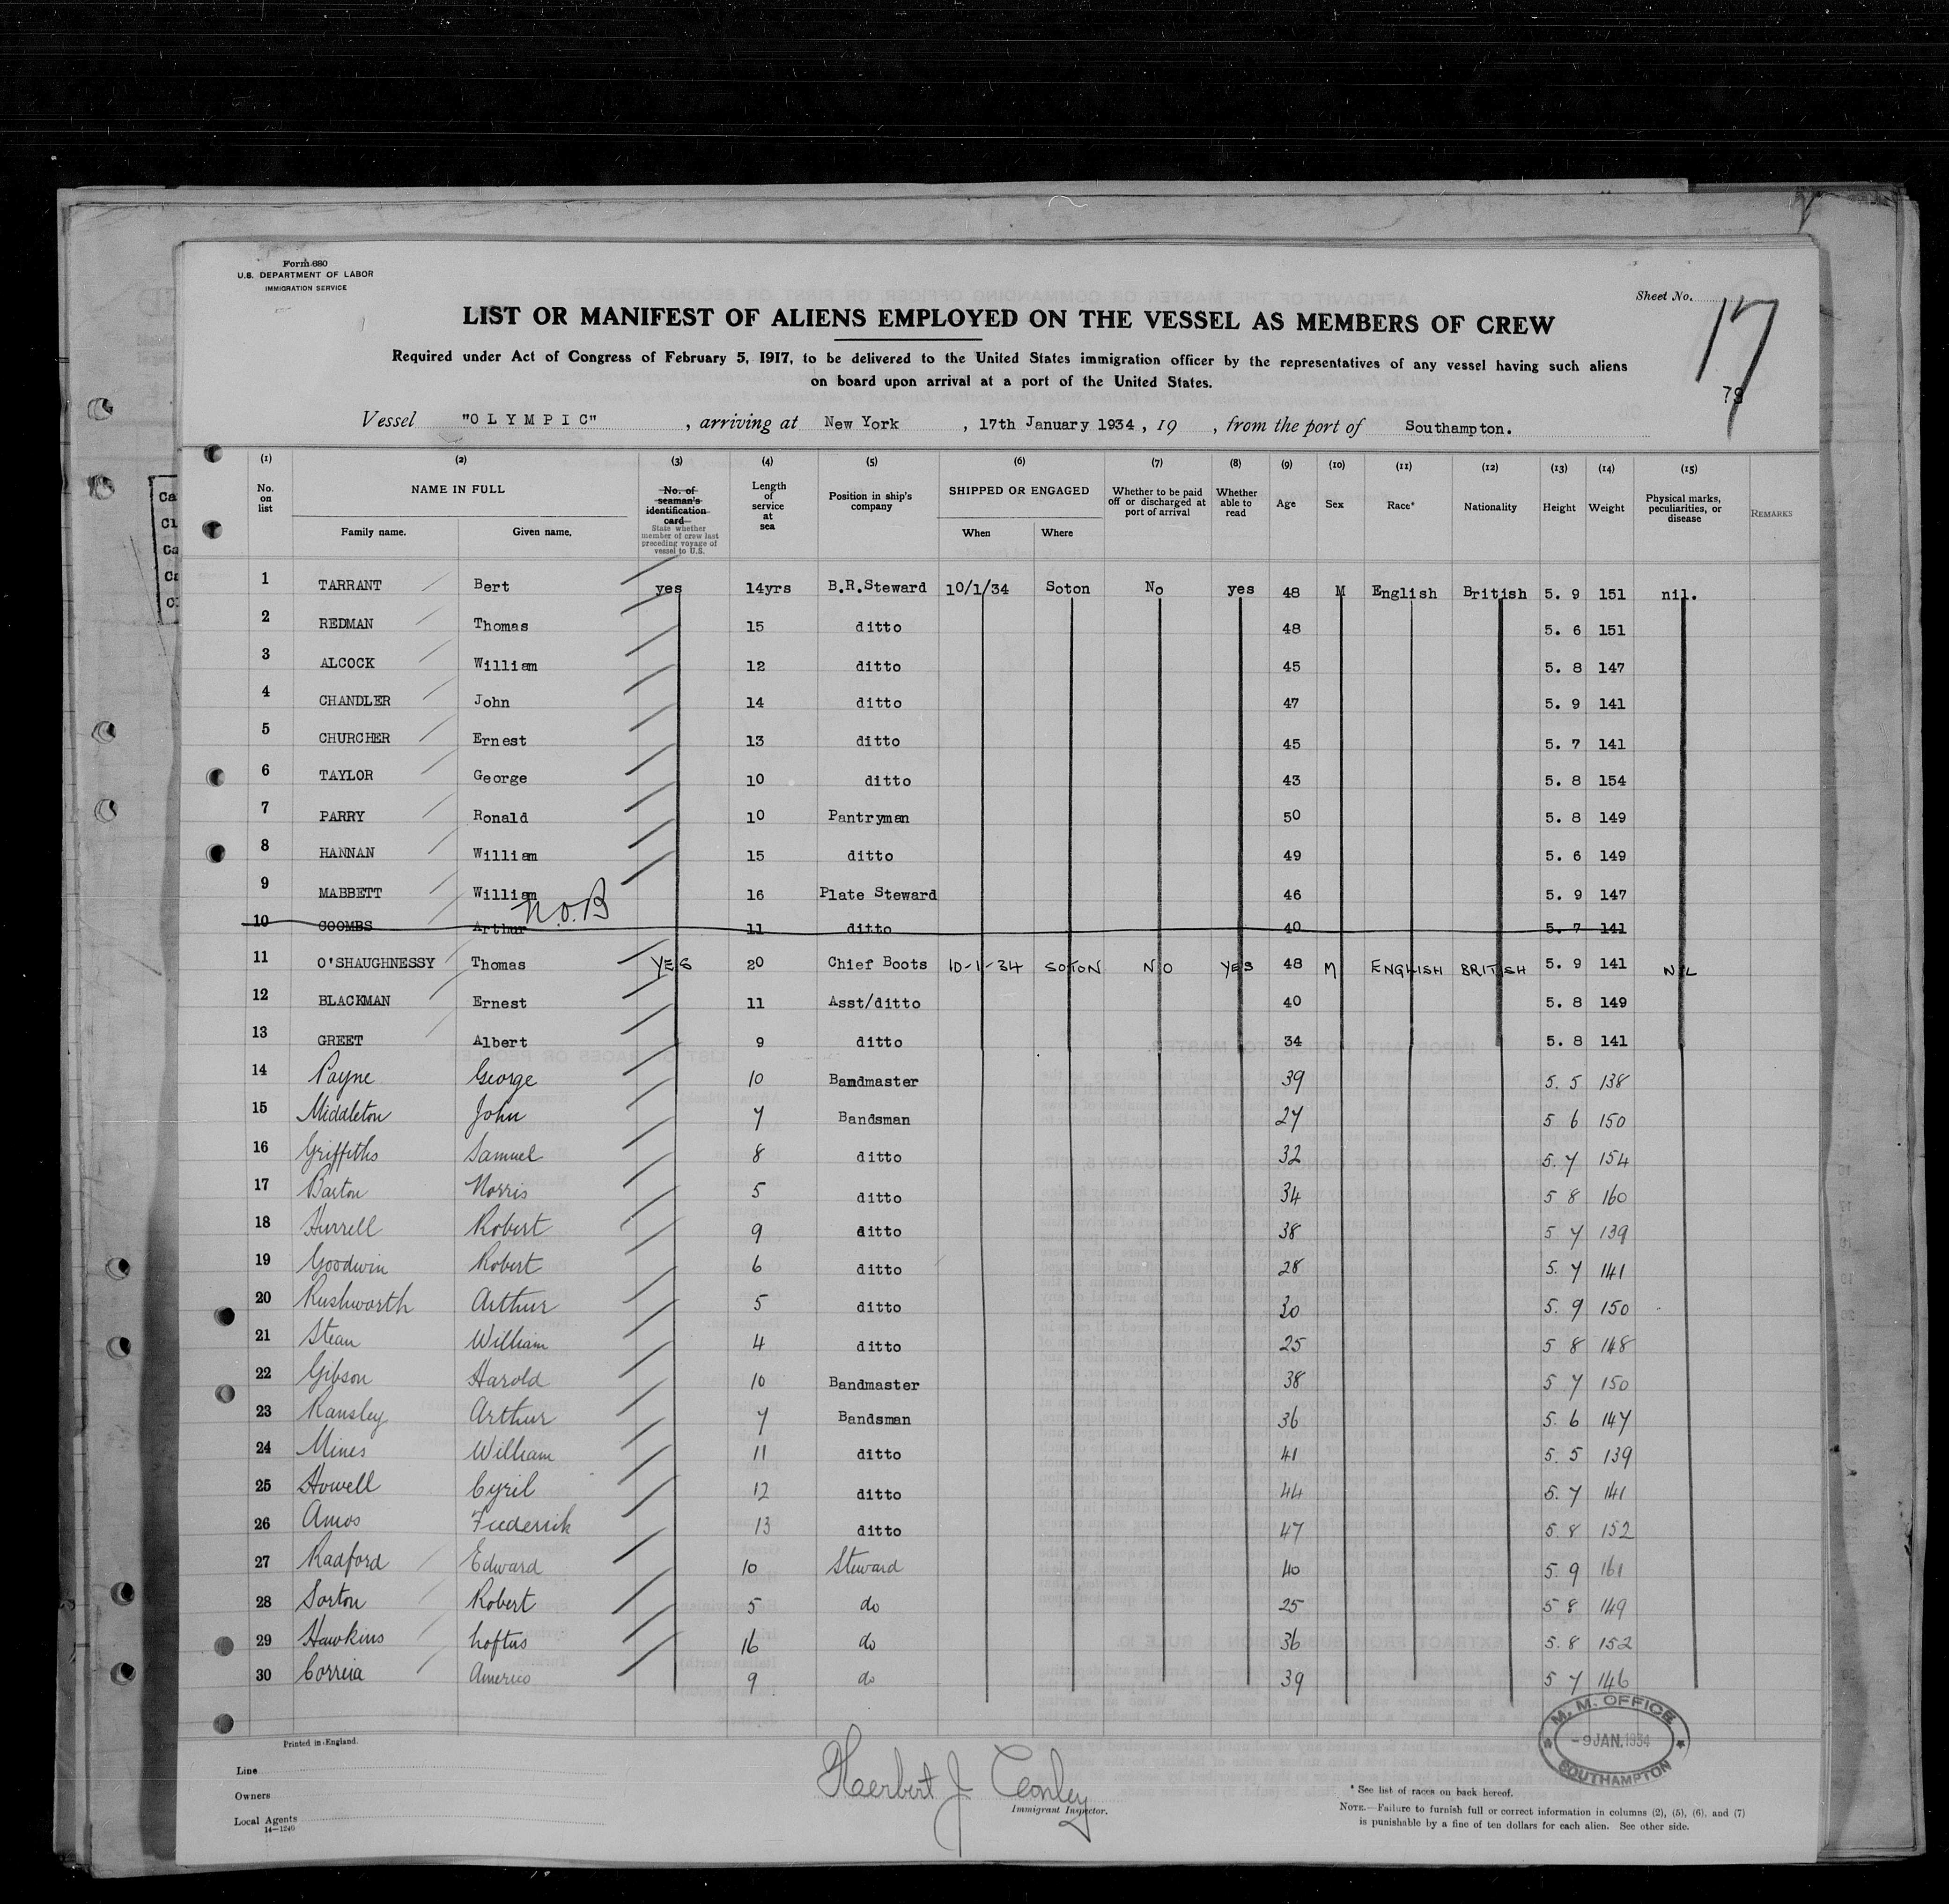 Form 680
U.S. DEPARTMENT OF LABOR
IMMIGRATION SERVICE
Sheet No. 17
79
LIST OR MANIFEST OF ALIENS EMPLOYED ON THE VESSEL AS MEMBERS OF CREW
Required under Act of Congress of February 5, 1917, to be delivered to the United States immigration officer by the representatives of any vessel having such aliens
on board upon arrival at a port of the United States.
Vessel "OLYMPIC", arriving at New York, 17th January 1934, 19 , from the port of Southampton.
(1) (2) (3) (4) (5) (6) (7) (8) (9) (10) (11) (12) (13) (14) (15)
No. on list NAME IN FULL Family name. Given name. No. of seaman's identification card State whether member of crew last preceding voyage of vessel to U.S. Length of service at sea Position in ship's company SHIPPED OR ENGAGED When Where Whether to be paid off or discharged at port of arrival Whether able to read Age Sex Race* Nationality Height Weight Physical marks, peculiarities, or disease REMARKS
1 TARRANT Bert yes 14yrs B.R.Steward 10/1/34 Soton No yes 48 M English British 5. 9 151 nil.
2 REDMAN Thomas 15 ditto 48 5. 6 151
3 ALCOCK William 12 ditto 45 5. 8 147
4 CHANDLER John 14 ditto 47 5. 9 141
5 CHURCHER Ernest 13 ditto 45 5. 7 141
6 TAYLOR George 10 ditto 43 5. 8 154
7 PARRY Ronald 10 Pantryman 50 5. 8 149
8 HANNAN William 15 ditto 49 5. 6 149
9 MABBETT William 16 Plate Steward 46 5. 9 147
N.O.B
10 COOMBS Arthur 11 ditto 40 5. 7 141
11 O'SHAUGHNESSY Thomas YES 20 Chief Boots 10-1-34 SOTON NO YES 48 M ENGLISH BRITISH 5. 9 141 NIL
12 BLACKMAN Ernest 11 Asst/ditto 40 5. 8 149
13 GREET Albert 9 ditto 34 5. 8 141
14 Payne George 10 Bandmaster 39 5. 5 138
15 Middleton John 7 Bandsman 27 5 6 150
16 Griffiths Samuel 8 ditto 32 5. 7 154
17 Barton Norris 5 ditto 34 5 8 160
18 Hurrell Robert 9 ditto 38 5 7 139
19 Goodwin Robert 6 ditto 28 5. 7 141
20 Rushworth Arthur 5 ditto 30 5. 9 150
21 Stean William 4 ditto 25 5 8 148
22 Gibson Harold 10 Bandmaster 38 5 7 150
23 Ransley Arthur 7 Bandsman 36 5. 6 147
24 Mines William 11 ditto 41 5. 5 139
25 Howell Cyril 12 ditto 44 5. 7 141
26 Amos Frederick 13 ditto 47 5. 8 152
27 Radford Edward 10 Steward 40 5. 9 161
28 Sorton Robert 5 do 25 5 8 149
29 Hawkins Loftus 16 do 36 5. 8 152
30 Correia Americo 9 do 39 5 7 146
M. M. OFFICE
-9 JAN. 1934
SOUTHAMPTON
Printed in England.
Line
Owners
Local Agents
14—1240
Herbert J
Immigrant Inspector.
* See list of races on back hereof.
NOTE.—Failure to furnish full or correct information in columns (2), (5), (6), and (7)
is punishable by a fine of ten dollars for each alien. See other side.